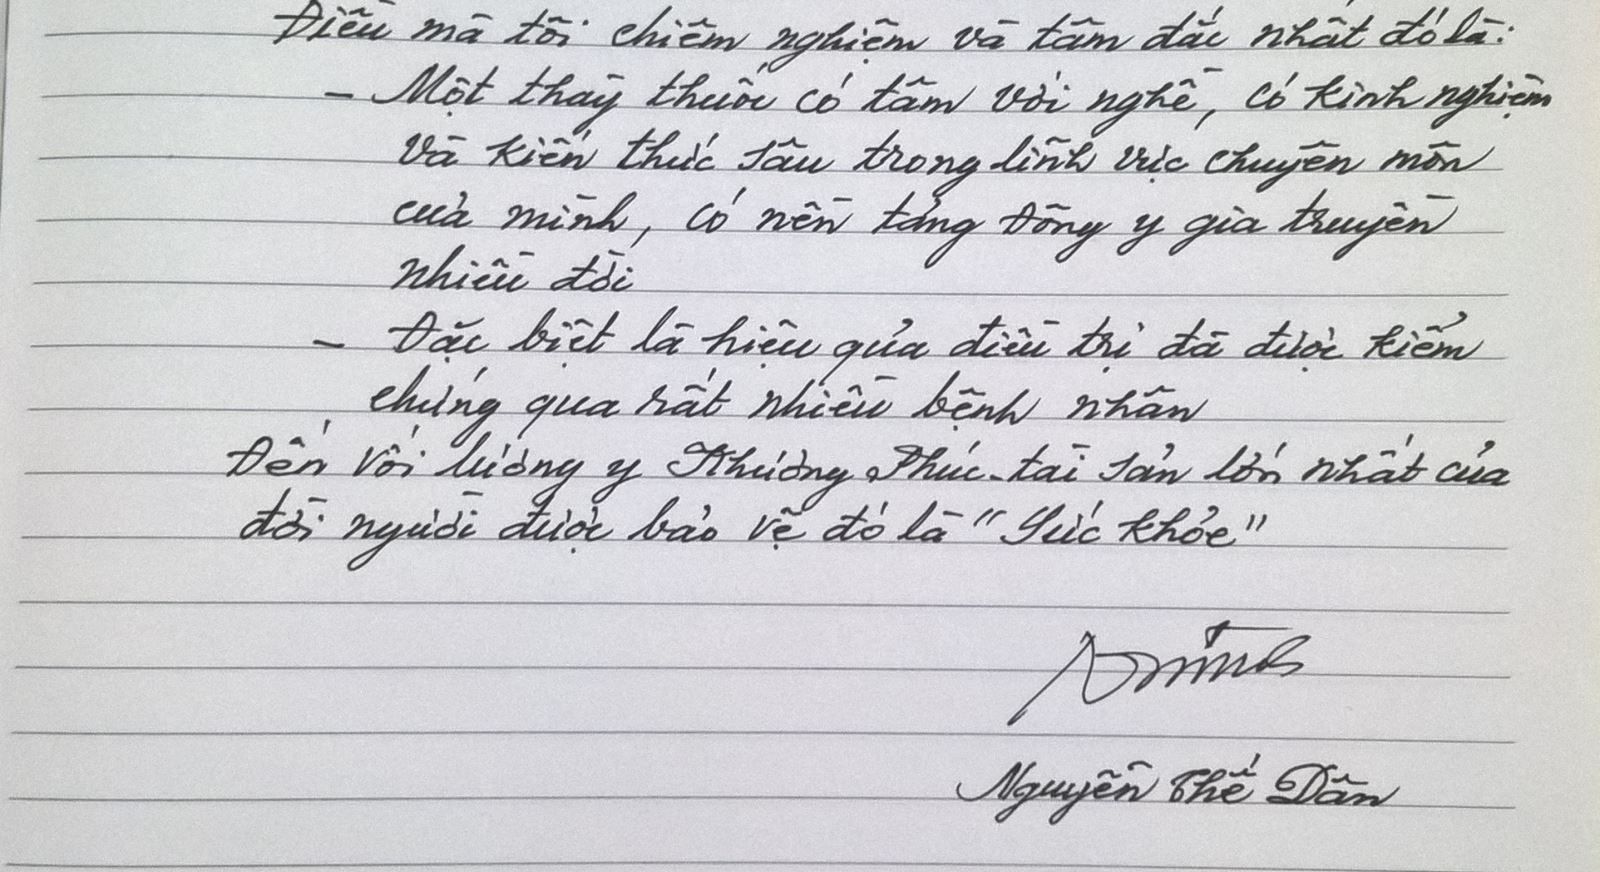 Điều mà tôi chiêm nghiệm và tâm đắc nhất đó là:
- Một thầy thuốc có tâm với nghề, có kinh nghiệm
và kiến thức sâu trong lĩnh vực chuyên môn
của mình, có nền tảng Đông y gia truyền
nhiều đời
- Đặc biệt là hiệu qủa điều trị đã được kiểm
chứng qua rất nhiều bệnh nhân
Đến với lương y Khương Phúc - tài sản lớn nhất của
đời người được bảo vệ đó là "Sức khỏe"
Nguyễn Thế Dân